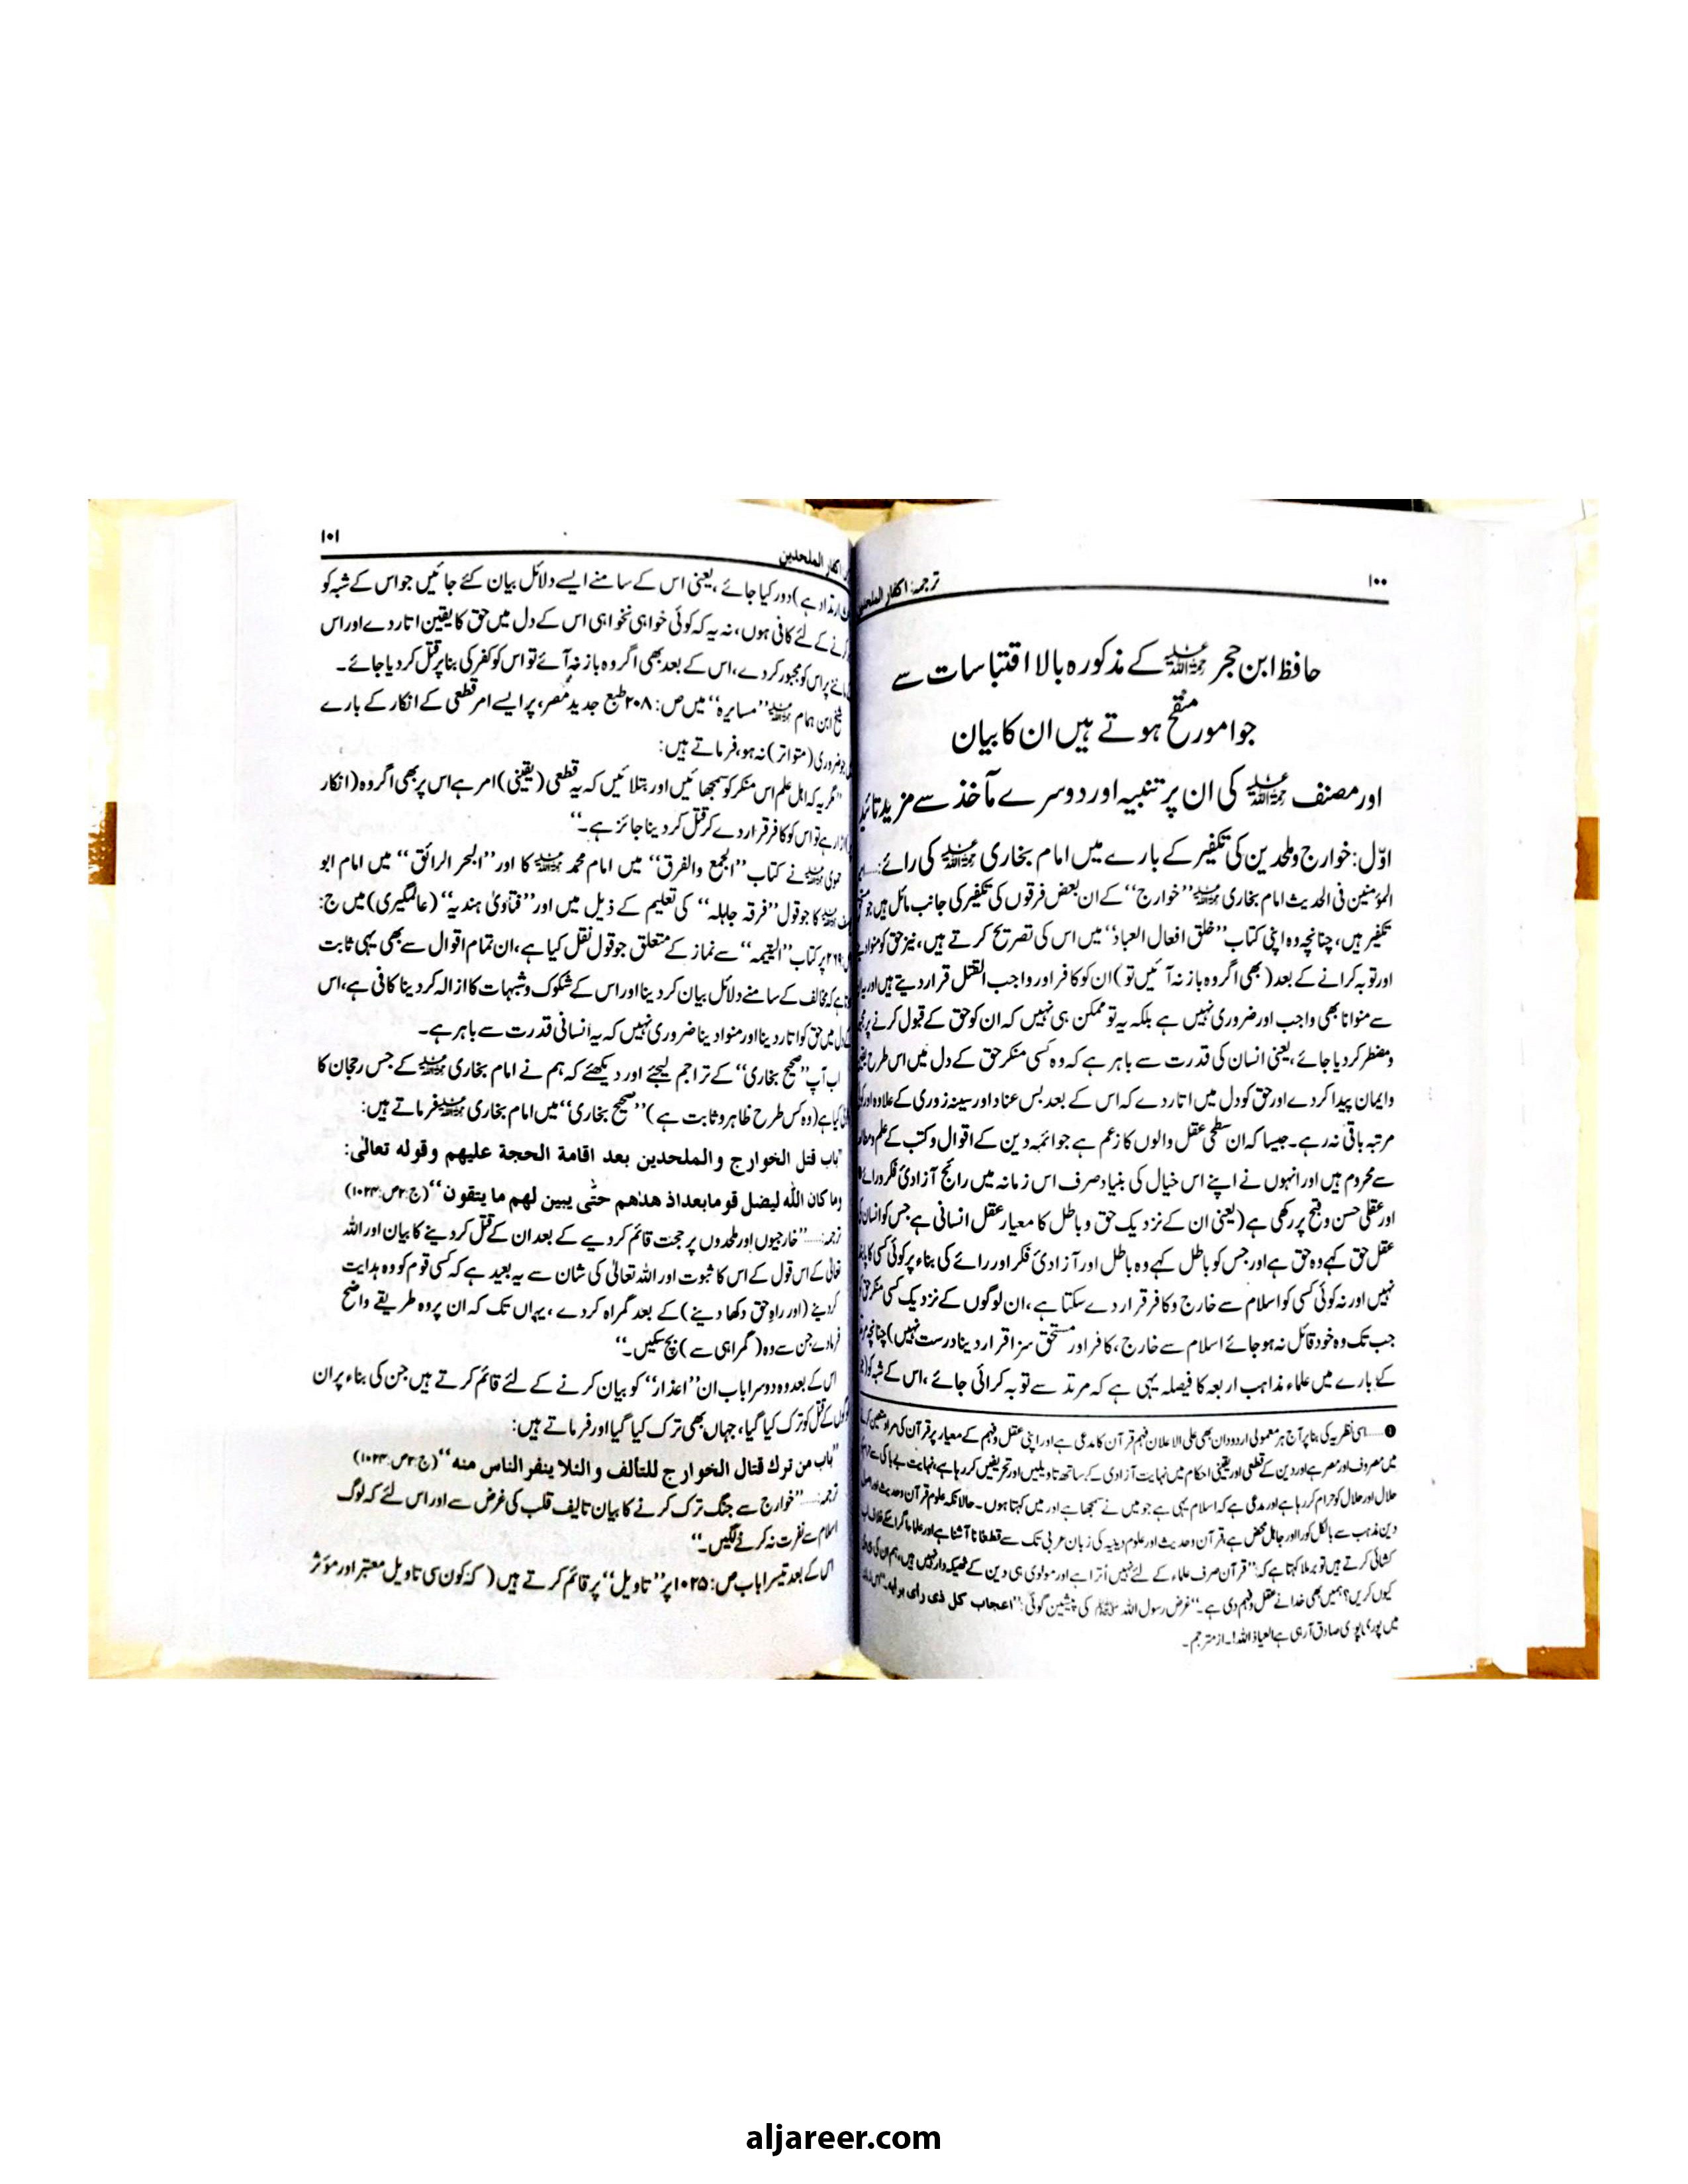 ۱۰۰
ترجمہ: اکفار الملحدین
حافظ ابن حجر رحمۃ اللہ علیہ کے مذکورہ بالا اقتباسات سے
جو امور منقح ہوتے ہیں ان کا بیان
اور مصنف رحمۃ اللہ علیہ کی ان پر تنبیہ اور دوسرے مآخذ سے مزید تائید
اوّل: خوارج و ملحدین کی تکفیر کے بارے میں امام بخاری رحمۃ اللہ علیہ کی رائے:
المؤمنین فی الحدیث امام بخاری رحمۃ اللہ علیہ ’’خوارج‘‘ کے ان بعض فرقوں کی تکفیر کی جانب مائل ہیں جو
تکفیر ہیں، چنانچہ وہ اپنی کتاب ’’خلق افعال العباد‘‘ میں اس کی تصریح کرتے ہیں، نیز حق کو
اور توبہ کرانے کے بعد (بھی اگر وہ باز نہ آئیں تو) ان کو کافر اور واجب القتل قرار دیتے ہیں اور
سے منوانا بھی واجب اور ضروری نہیں ہے بلکہ یہ تو ممکن ہی نہیں کہ ان کو حق کے قبول کرنے پر
و مضطر کر دیا جائے، یعنی انسان کی قدرت سے باہر ہے کہ وہ کسی منکر حق کے دل میں اس طرح
و ایمان پیدا کر دے اور حق کو دل میں اتار دے کہ اس کے بعد بس عناد اور سینہ زوری کے علاوہ اور
مرتبہ باقی نہ رہے۔ جیسا کہ ان سطحی عقل والوں کا زعم ہے جو ائمہ دین کے اقوال و کتب کے علم
سے محروم ہیں اور انہوں نے اپنے اس خیال کی بنیاد صرف اس زمانہ میں رائج آزادیٔ فکر و رائے
اور عقلی حسن و قبح پر رکھی ہے (یعنی ان کے نزدیک حق و باطل کا معیار عقل انسانی ہے جس کو انسان
عقل حق کہے وہ حق ہے اور جس کو باطل کہے وہ باطل اور آزادیٔ فکر اور رائے کی بناء پر کوئی کسی کا
نہیں اور نہ کوئی کسی کو اسلام سے خارج و کافر قرار دے سکتا ہے، ان لوگوں کے نزدیک کسی منکر حق
جب تک وہ خود قائل نہ ہو جائے اسلام سے خارج، کافر اور مستحق سزا قرار دینا درست نہیں) چنانچہ
کے بارے میں علماء مذاہب اربعہ کا فیصلہ یہی ہے کہ مرتد سے توبہ کرائی جائے، اس کے شبہ کو
❶ اسی نظریہ کی بنا پر آج ہر معمولی اردو دان بھی علی الاعلان فہم قرآن کا مدعی ہے اور اپنی عقل و فہم کے معیار پر قرآن کی مراد متعین کرنے
میں مصروف اور مصر ہے اور دین کے قطعی اور یقینی احکام میں نہایت آزادی کے ساتھ تاویلیں اور تحریفیں کر رہا ہے، نہایت بے باکی سے
حلال اور حلال کو حرام کر رہا ہے اور مدعی ہے کہ اسلام یہی ہے جو میں نے سمجھا ہے اور میں کہتا ہوں۔ حالانکہ علوم قرآن و حدیث اور
دین مذہب سے بالکل کورا اور جاہل محض ہے، قرآن و حدیث اور علوم دینیہ کی زبان عربی تک سے قطعاً نا آشنا ہے اور علماء اگر اس کے خلاف لب
کشائی کرتے ہیں تو برملا کہتا ہے کہ: ’’قرآن صرف علماء کے لئے نہیں اُترا ہے اور مولوی ہی دین کے ٹھیکدار نہیں ہیں، ہم ان کی
کیوں کریں؟ ہمیں بھی خدا نے عقل و فہم دی ہے۔‘‘ غرض رسول اللہ ﷺ کی پیشین گوئی: ’’اعجاب کل ذی رای برایہ۔‘‘
میں پوری پوری صادق آ رہی ہے العیاذ باللہ!۔ از مترجم۔
۱۰۱
اکفار الملحدین
ارتداد ہے) دور کیا جائے، یعنی اس کے سامنے ایسے دلائل بیان کئے جائیں جو اس کے شبہ کو
کرنے کے لئے کافی ہوں، نہ یہ کہ کوئی خواہی نخواہی اس کے دل میں حق کا یقین اتار دے اور اس
ماننے پر اس کو مجبور کر دے، اس کے بعد بھی اگر وہ باز نہ آئے تو اس کو کفر کی بنا پر قتل کر دیا جائے۔
شیخ ابن ہمام رحمۃ اللہ علیہ ’’مسایرہ‘‘ میں ص: ۲۰۸ طبع جدید مصر، پر ایسے امر قطعی کے انکار کے بارے
جو ضروری (متواتر) نہ ہو، فرماتے ہیں:
’’مگر یہ کہ اہل علم اس منکر کو سمجھائیں اور بتلائیں کہ یہ قطعی (یقینی) امر ہے اس پر بھی اگر وہ (انکار
اڑا رہے تو اس کو کافر قرار دے کر قتل کر دینا جائز ہے۔‘‘
حموی رحمۃ اللہ علیہ نے کتاب ’’الجمع والفرق‘‘ میں امام محمد رحمۃ اللہ علیہ کا اور ’’البحر الرائق‘‘ میں امام ابو
رحمۃ اللہ علیہ کا جو قول ’’فرقہ جاہلہ‘‘ کی تعلیم کے ذیل میں اور ’’فتاویٰ ہندیہ‘‘ (عالمگیری) میں ج:
۲۶۹ پر کتاب ’’الیتیمہ‘‘ سے نماز کے متعلق جو قول نقل کیا ہے، ان تمام اقوال سے بھی یہی ثابت
ہے کہ مخالف کے سامنے دلائل بیان کر دینا اور اس کے شکوک و شبہات کا ازالہ کر دینا کافی ہے، اس
کے دل میں حق کو اتار دینا اور منوا دینا ضروری نہیں کہ یہ انسانی قدرت سے باہر ہے۔
اب آپ ’’صحیح بخاری‘‘ کے تراجم لیجئے اور دیکھئے کہ ہم نے امام بخاری رحمۃ اللہ علیہ کے جس رجحان کا
کیا ہے (وہ کس طرح ظاہر و ثابت ہے) ’’صحیح بخاری‘‘ میں امام بخاری رحمۃ اللہ علیہ فرماتے ہیں:
’’باب قتل الخوارج والملحدین بعد اقامة الحجة علیهم وقوله تعالٰی:
وما کان اللّٰه لیضل قوما بعد اذ هداهم حتّٰی یبین لهم ما یتقون‘‘ (ج:۲ ص:۱۰۲۴)
ترجمہ:...... ’’خارجیوں اور ملحدوں پر حجت قائم کر دیے کے بعد ان کے قتل کر دینے کا بیان اور اللہ
تعالٰی کے اس قول کے اس کا ثبوت اور اللہ تعالیٰ کی شان سے یہ بعید ہے کہ کسی قوم کو وہ ہدایت
کر دینے (اور راہِ حق دکھا دینے) کے بعد گمراہ کر دے، یہاں تک کہ ان پر وہ طریقے واضح
فرما دے جن سے وہ (گمراہی سے) بچ سکیں۔‘‘
اس کے بعد وہ دوسرا باب ان ’’اعذار‘‘ کو بیان کرنے کے لئے قائم کرتے ہیں جن کی بناء پر ان
لوگوں کے قتل کو ترک کیا گیا، جہاں بھی ترک کیا گیا اور فرماتے ہیں:
’’باب من ترك قتال الخوارج للتالف والئلا ینفر الناس منه‘‘ (ج:۲ ص:۱۰۲۴)
ترجمہ:...... ’’خوارج سے جنگ ترک کرنے کا بیان تالیف قلب کی غرض سے اور اس لئے کہ لوگ
اسلام سے نفرت نہ کرنے لگیں۔‘‘
اس کے بعد تیسرا باب ص:۱۰۲۵ پر ’’تاویل‘‘ پر قائم کرتے ہیں (کہ کون سی تاویل معتبر اور مؤثر
aljareer.com